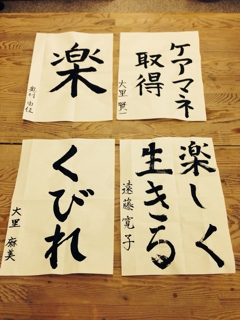 楽
ケアマネ
取得
大里 賢一
くびれ
大里 麻美
楽しく
生きる
遠藤 寛子